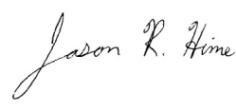 Jason R. Hime